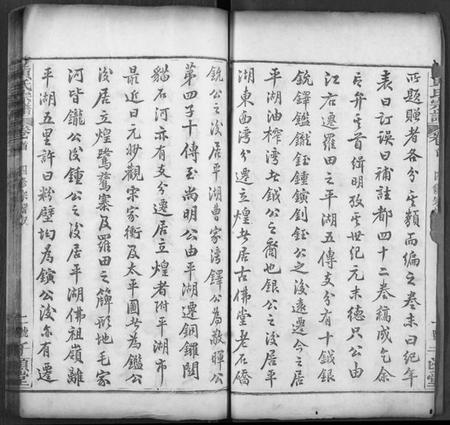 所題贈者各分其類而編之卷末曰紀年
表曰訂誤曰補註都四十二卷稿成乞余
之弁其首緝明攷其世紀元末德只公由
江右遷羅田之平湖五傳支分有十鉞銀
銃鐸鑑鑨鈺鍾鐀釗鈺公之後遠遷今之居
平湖油榨灣尤鉞公之裔也銀公之後居平
湖東西灣分遷立煌者居古佛堂老石橋
銃公之後居平湖曹家湾鐸公為敵暉公
第四子十傳玉尚明公由平湖遷銅鑼關
貓石河亦有支分遷居立煌者附平湖市
最近日元妙觀宋家衝及太平圓者為鑑公
後居立煌鷺鷥寨及羅田之簰形地毛家
河皆鑨公後鍾公之後居平湖佛祖嶺離
平湖五里許曰粉壁均為鐀公後亦有遷